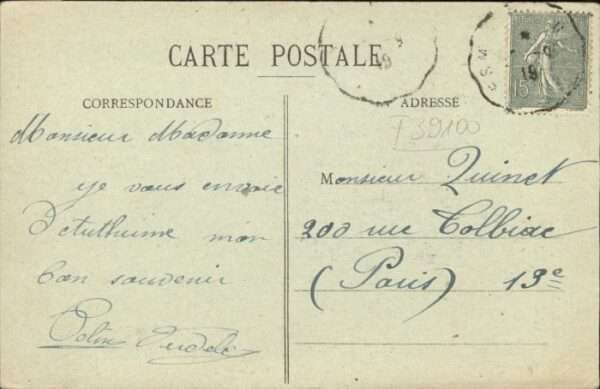 CARTE POSTALE
CORRESPONDANCE
Monsieur Madame
je vous envoie
mon
bon souvenir
ADRESSE
F39100
Monsieur Quinet
200 rue Tolbiac
(Paris) 13e
15